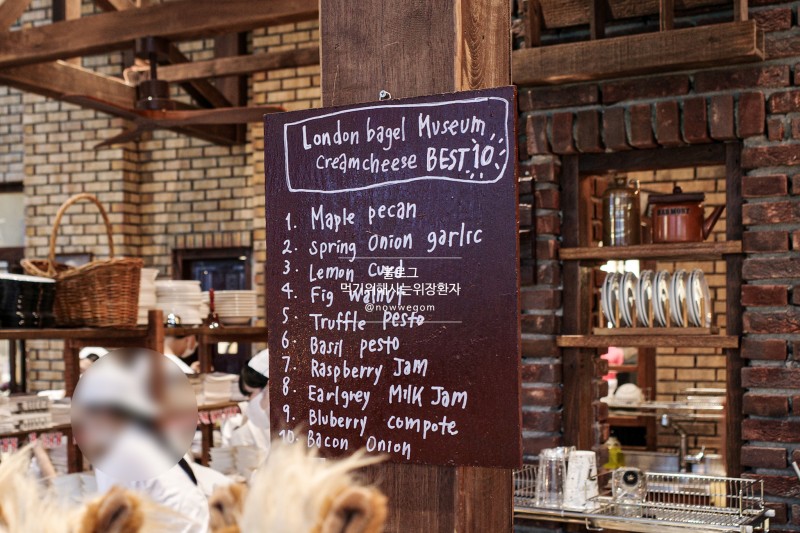 London bagel Museum
Creamcheese BEST 10
1. Maple pecan
2. spring Onion garlic
3. Lemon Curd
4. Fig walnut
5. Truffle pesto
6. Basil pesto
7. Raspberry Jam
8. Earlgrey Milk Jam
9. Bluberry compote
10. Bacon Onion
블로그
먹기위해사는위장환자
@nowwegom